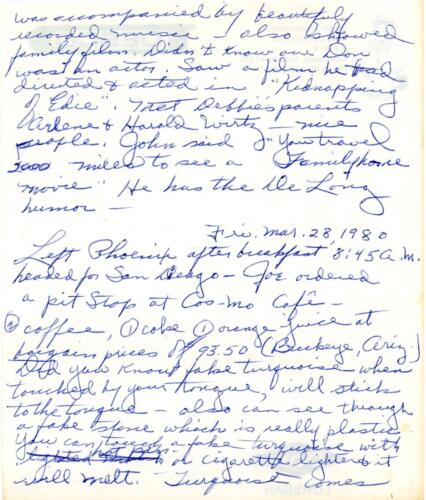 was accompanied by beautifully
recorded music - also showed
family film. Didn't know our Don
was an actor. Saw a film he had
directed & acted in "Kidnapping
of Edie". Met Debbies parents
Arlene & Harald Wirtz - nice
people. John said "You travel
3000 miles to see a Family home
movie" He has the De Long
humor -
Fri. Mar. 28, 1980
Left Phoenix after breakfast 8:45 A.M.
headed for San Deago - Joe ordered
a pit stop at Cos-mo Café -
2 coffee, 1 coke 1 orange juice at
bargain prices of $3.50 (Buckeye, Ariz.)
Did you know fake turquoise when
touched by your tongue, will stick
to the tongue - also can see through
a fake stone which is really plastic.
You can touch a fake turquoise with
hot pin or cigarette lighter & it
will melt. Turquoise comes